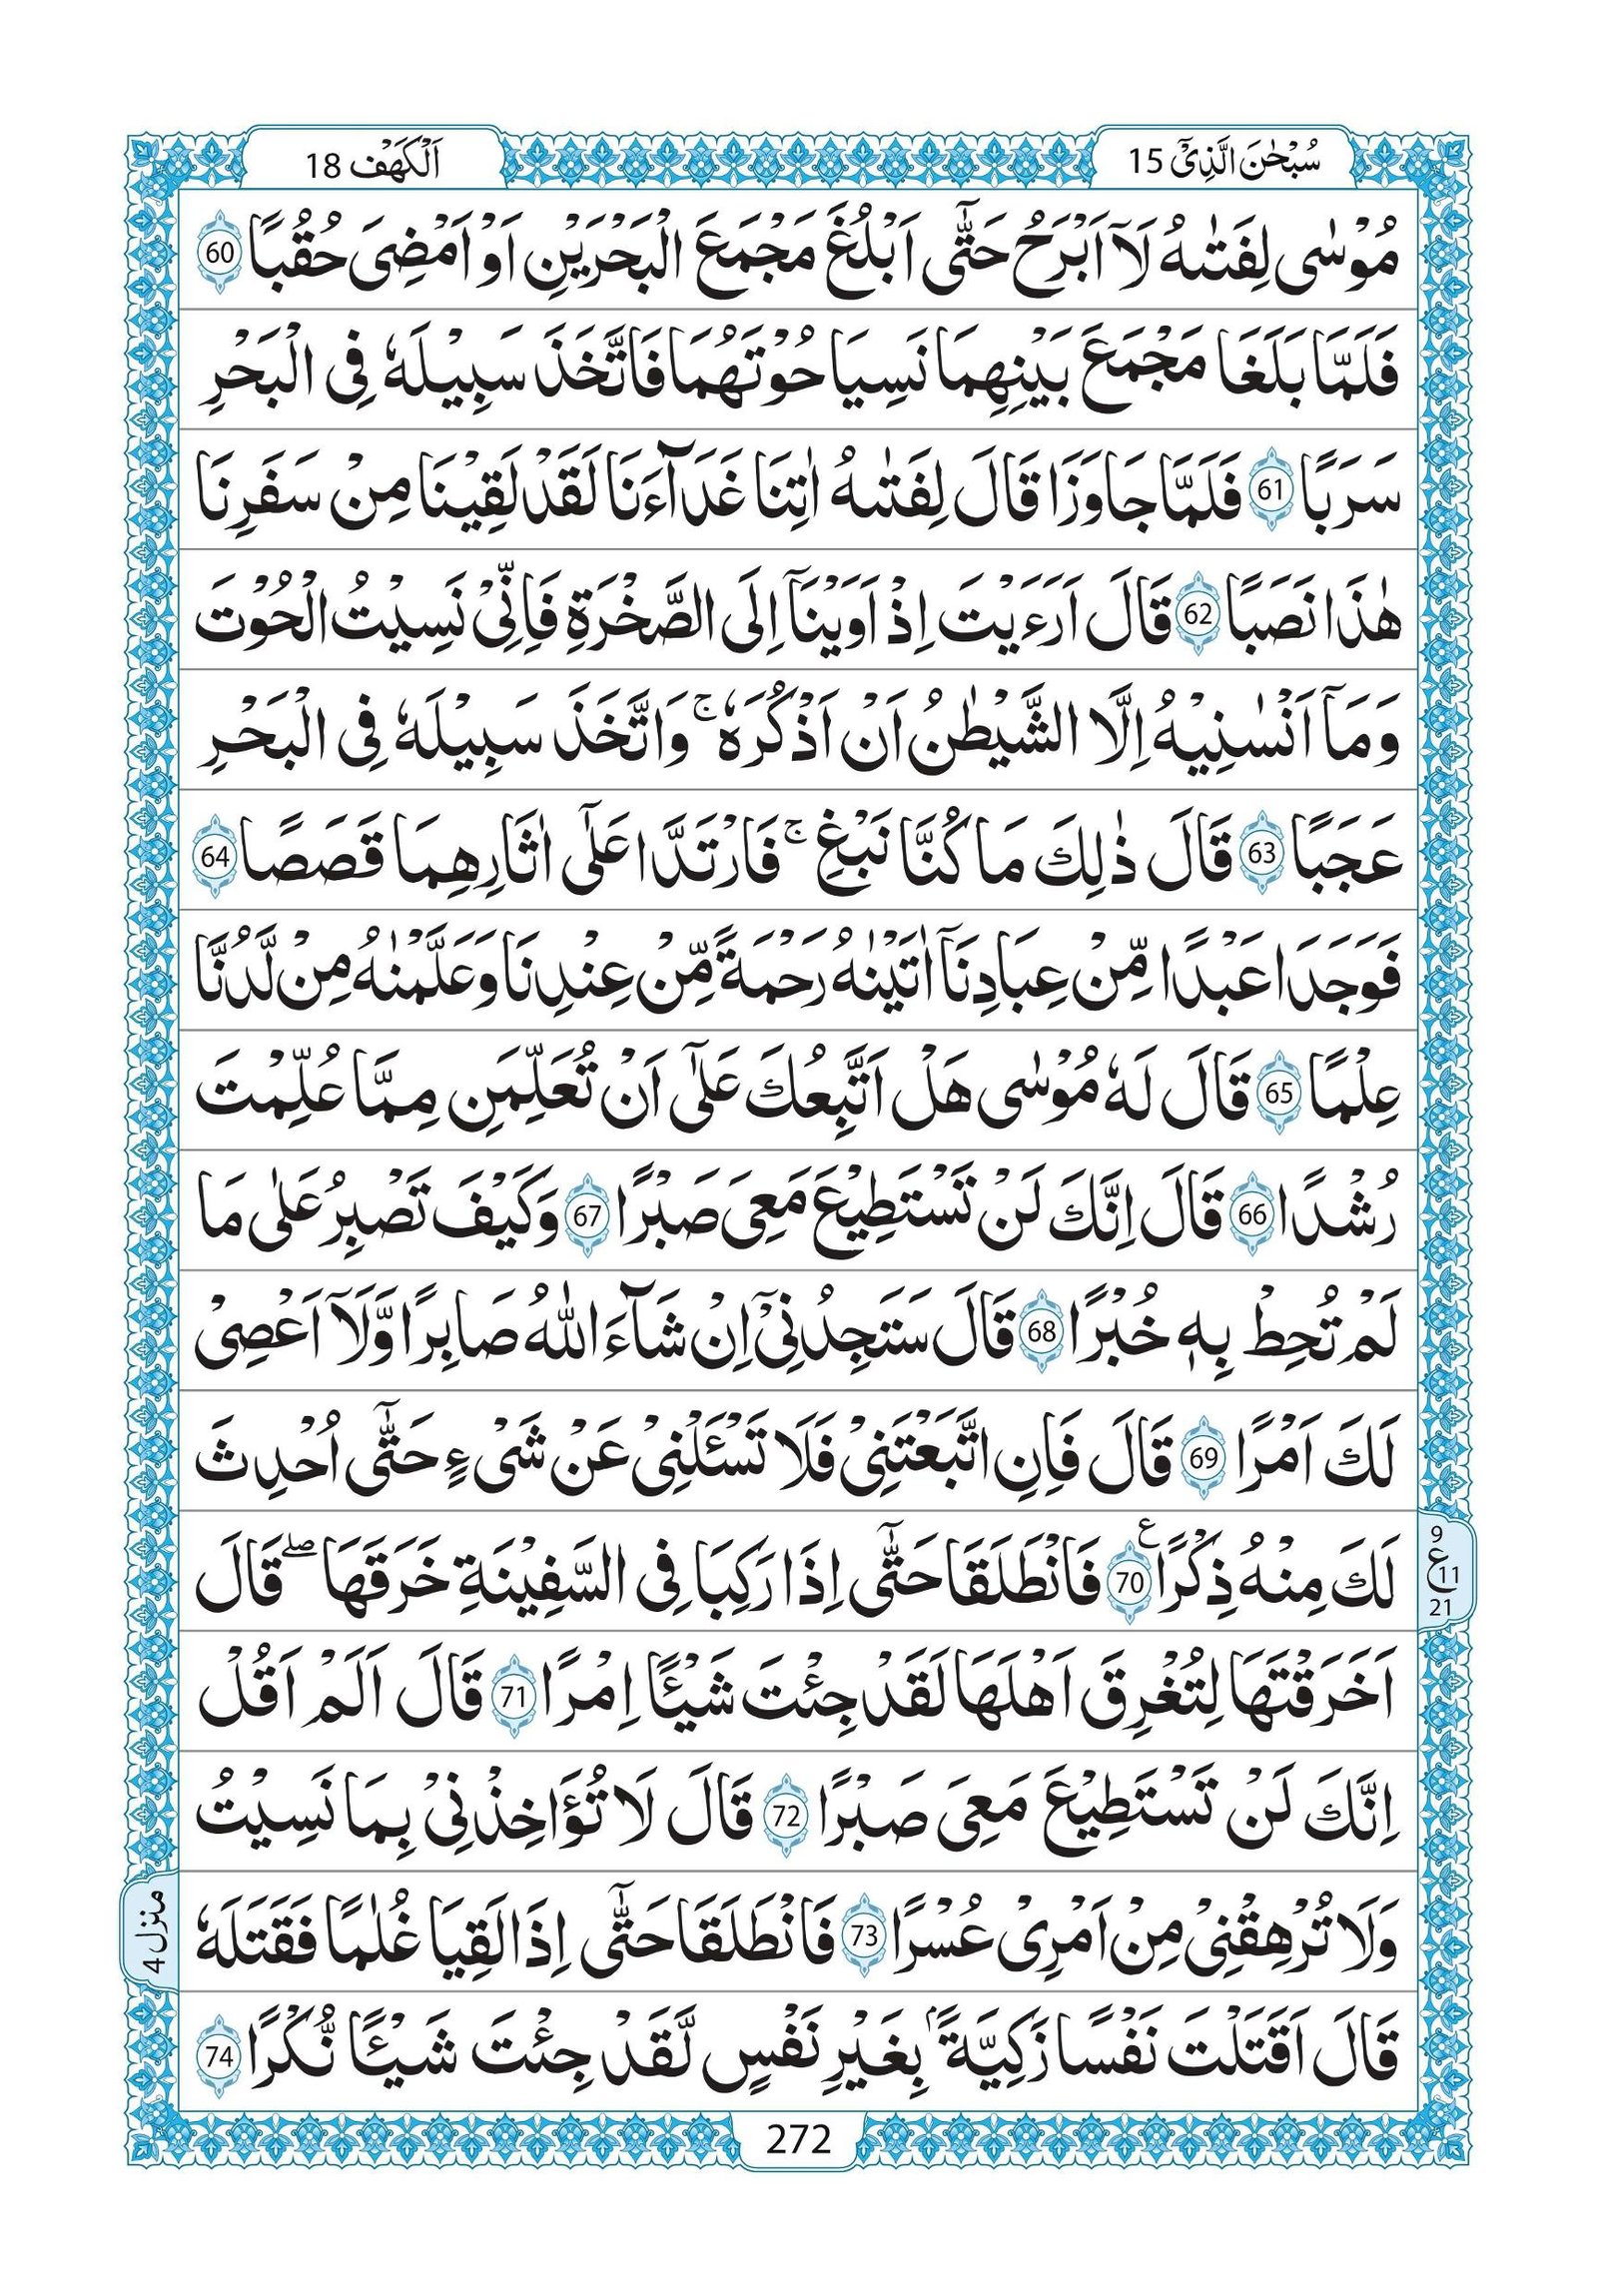 سُبْحٰنَ الَّذِیْۤ 15
اَلْكَهْف 18
مُوْسٰى لِفَتٰىهُ لَاۤ اَبْرَحُ حَتّٰۤى اَبْلُغَ مَجْمَعَ الْبَحْرَیْنِ اَوْ اَمْضِیَ حُقُبًا 60
فَلَمَّا بَلَغَا مَجْمَعَ بَیْنِهِمَا نَسِیَا حُوْتَهُمَا فَاتَّخَذَ سَبِیْلَهٗ فِی الْبَحْرِ
سَرَبًا 61 فَلَمَّا جَاوَزَا قَالَ لِفَتٰىهُ اٰتِنَا غَدَآءَنَا لَقَدْ لَقِیْنَا مِنْ سَفَرِنَا
هٰذَا نَصَبًا 62 قَالَ اَرَءَیْتَ اِذْ اَوَیْنَاۤ اِلَى الصَّخْرَةِ فَاِنِّیْ نَسِیْتُ الْحُوْتَ
وَمَاۤ اَنْسٰىنِیْهُ اِلَّا الشَّیْطٰنُ اَنْ اَذْكُرَهٗ ۚ وَاتَّخَذَ سَبِیْلَهٗ فِی الْبَحْرِ
عَجَبًا 63 قَالَ ذٰلِكَ مَا كُنَّا نَبْغِ ۚ فَارْتَدَّا عَلٰۤى اٰثَارِهِمَا قَصَصًا 64
فَوَجَدَا عَبْدًا مِّنْ عِبَادِنَاۤ اٰتَیْنٰهُ رَحْمَةً مِّنْ عِنْدِنَا وَعَلَّمْنٰهُ مِنْ لَّدُنَّا
عِلْمًا 65 قَالَ لَهٗ مُوْسٰى هَلْ اَتَّبِعُكَ عَلٰۤى اَنْ تُعَلِّمَنِ مِمَّا عُلِّمْتَ
رُشْدًا 66 قَالَ اِنَّكَ لَنْ تَسْتَطِیْعَ مَعِیَ صَبْرًا 67 وَكَیْفَ تَصْبِرُ عَلٰى مَا
لَمْ تُحِطْ بِهٖ خُبْرًا 68 قَالَ سَتَجِدُنِیْۤ اِنْ شَآءَ اللّٰهُ صَابِرًا وَّلَاۤ اَعْصِیْ
لَكَ اَمْرًا 69 قَالَ فَاِنِ اتَّبَعْتَنِیْ فَلَا تَسْـَٔلْنِیْ عَنْ شَیْءٍ حَتّٰۤى اُحْدِثَ
لَكَ مِنْهُ ذِكْرًا ع 70 فَانْطَلَقَا حَتّٰۤى اِذَا رَكِبَا فِی السَّفِیْنَةِ خَرَقَهَا ۖ قَالَ
9
ع 11
21
اَخَرَقْتَهَا لِتُغْرِقَ اَهْلَهَا لَقَدْ جِئْتَ شَیْـًٔا اِمْرًا 71 قَالَ اَلَمْ اَقُلْ
اِنَّكَ لَنْ تَسْتَطِیْعَ مَعِیَ صَبْرًا 72 قَالَ لَا تُؤَاخِذْنِیْ بِمَا نَسِیْتُ
وَلَا تُرْهِقْنِیْ مِنْ اَمْرِیْ عُسْرًا 73 فَانْطَلَقَا حَتّٰۤى اِذَا لَقِیَا غُلٰمًا فَقَتَلَهٗ
منزل 4
قَالَ اَقَتَلْتَ نَفْسًا زَكِیَّةًۢ بِغَیْرِ نَفْسٍ لَّقَدْ جِئْتَ شَیْـًٔا نُّكْرًا 74
272